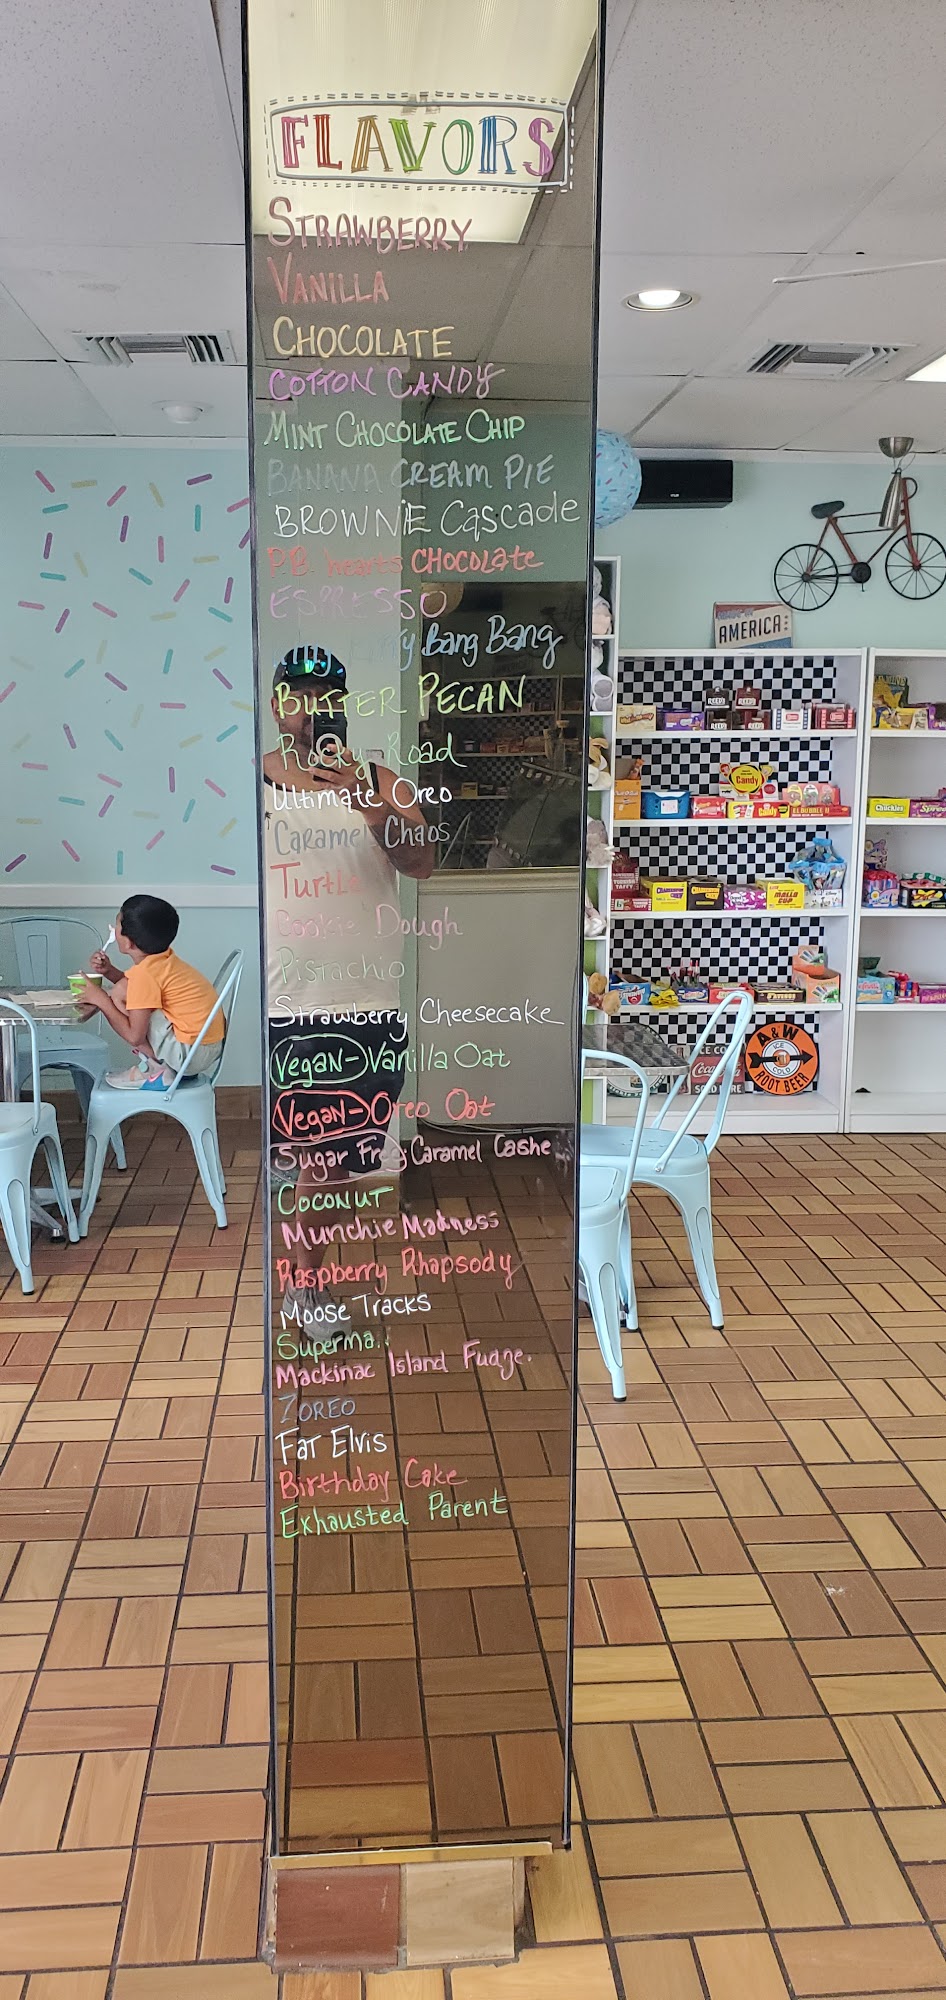 FLAVORS
STRAWBERRY
VANILLA
CHOCOLATE
COTTON CANDY
MINT CHOCOLATE CHIP
BANANA CREAM PIE
BROWNiE Cascade
P.B. hearts CHOCOLATE
ESPRESSO
Bang Bang
BUTTER PECAN
Rocky Road
Ultimate Oreo
Caramel Chaos
Turtle
Cookie Dough
Pistachio
Strawberry Cheesecake
Vegan- Vanilla Oat
Vegan- Oreo Oat
Sugar Free Caramel Cashe
COCONUT
Munchie Madness
Raspberry Rhapsody
Moose Tracks
Superma..
Mackinac Island Fudge.
ZOREO
Fat Elvis
Birthday Cake
Exhausted Parent
AMERICA
Candy
Chuckles
MALLO CUP
A&W
ICE COLD
ROOT BEER
ICE CO
Coca-Cola
SOLD HERE